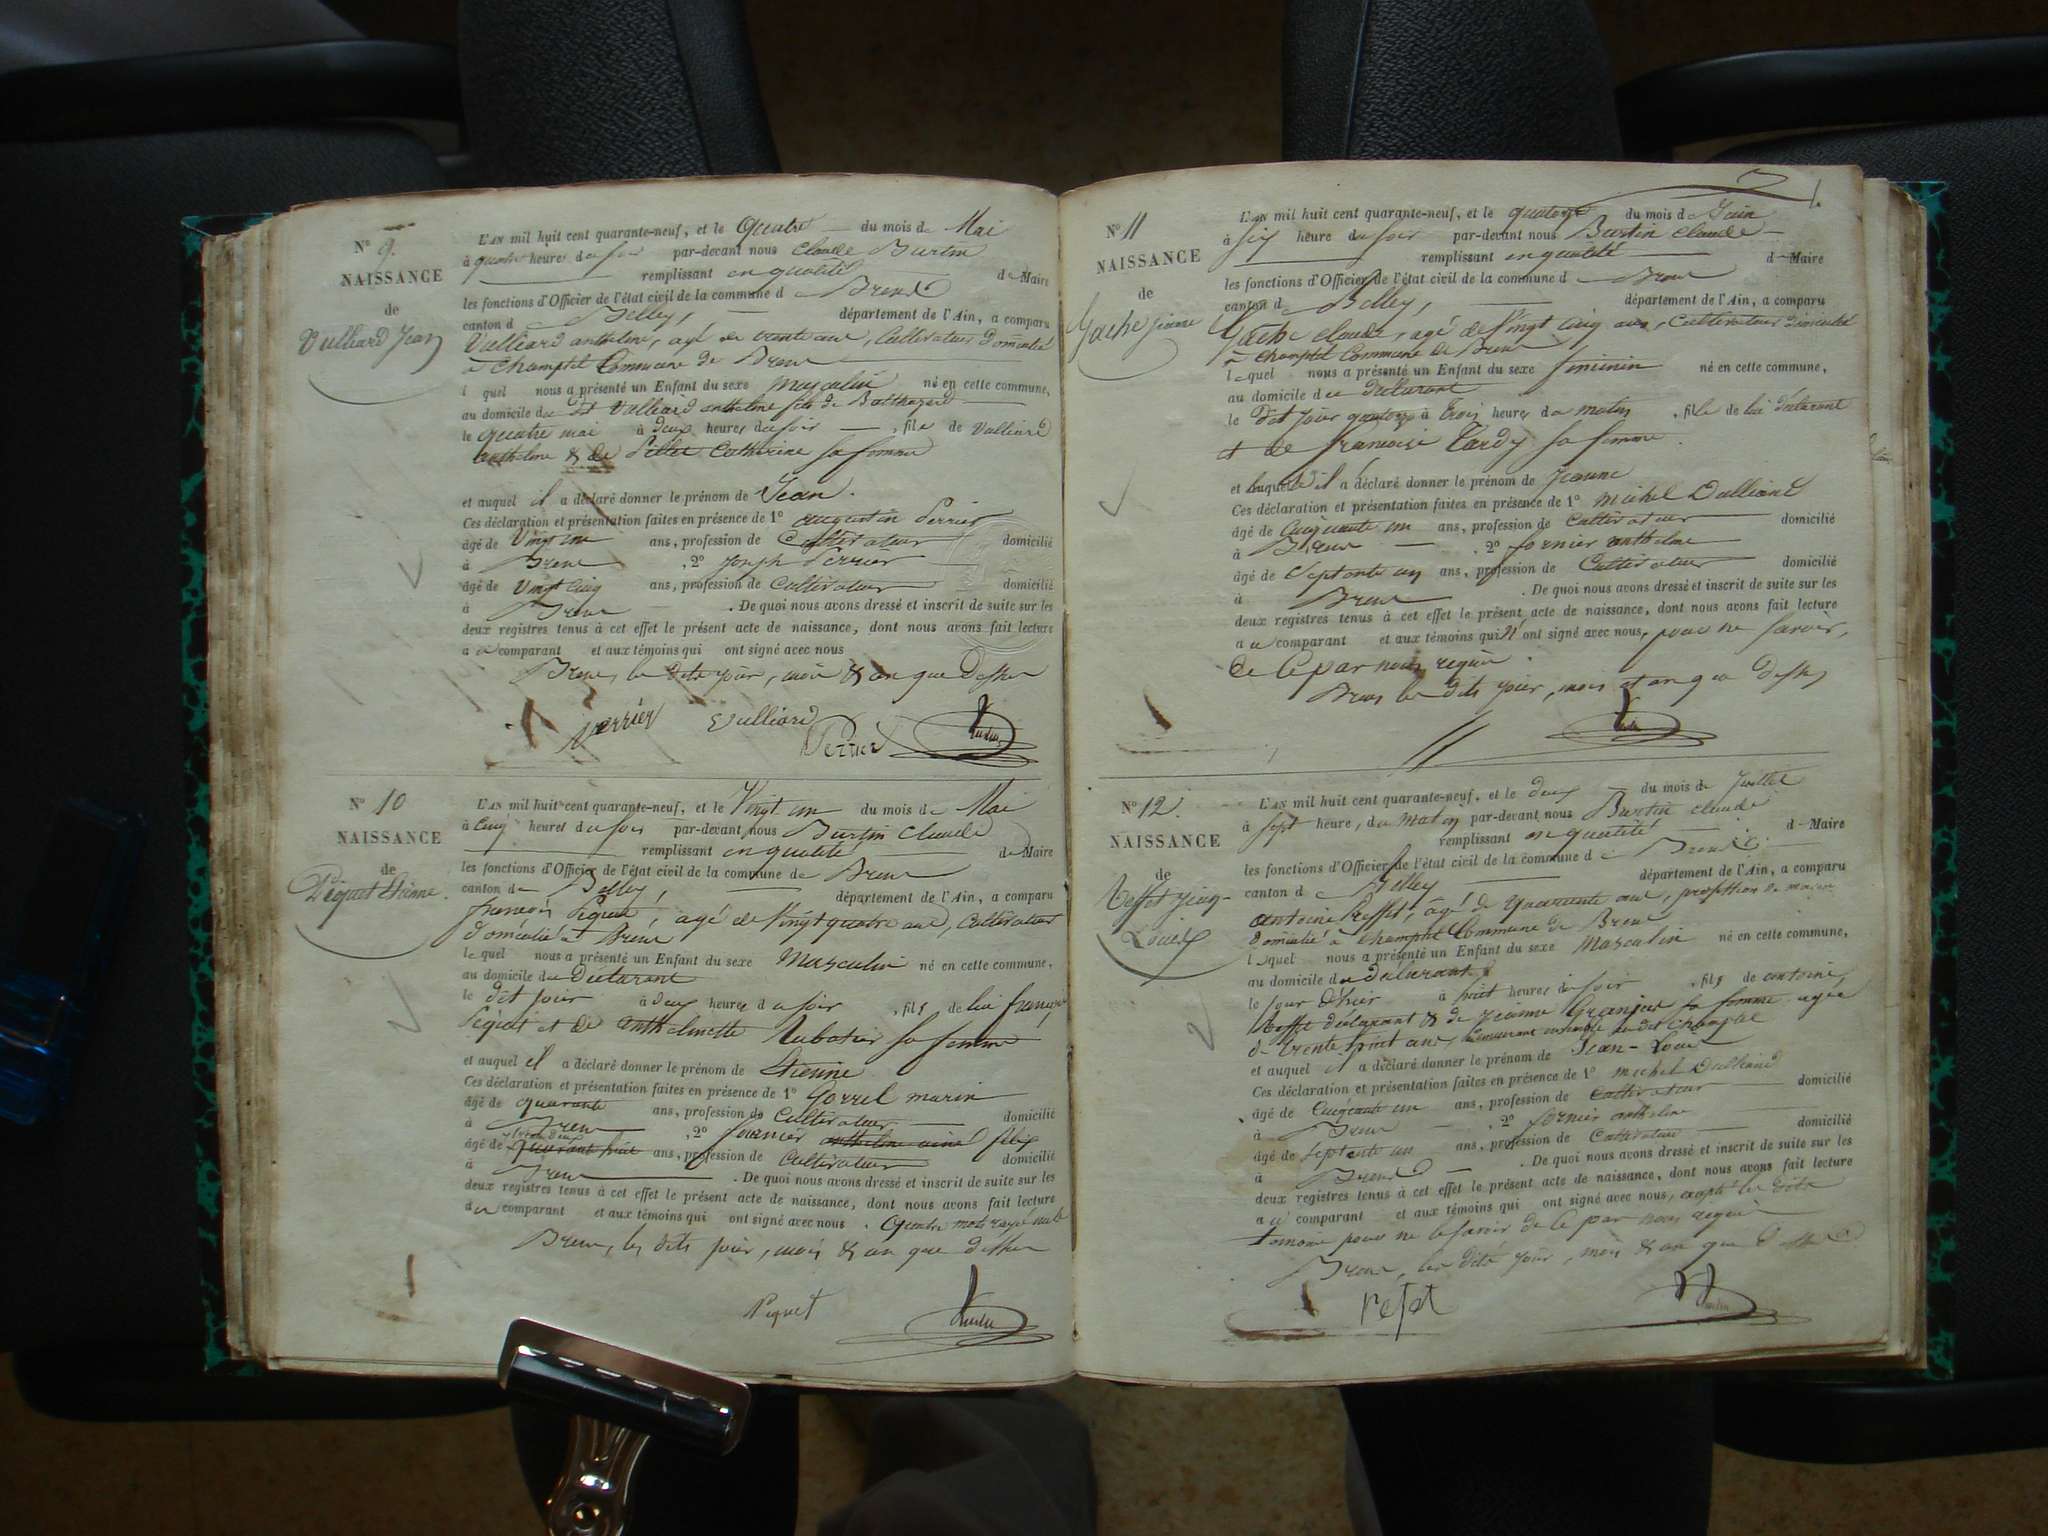 N° 9.
NAISSANCE
de
Vulliard Jean
L'AN mil huit cent quarante-neuf, et le quatre du mois de Mai
à quatre heures du soir par-devant nous Claude Burtin
remplissant en qualité de Maire
les fonctions d'Officier de l'état civil de la commune d Brens
canton d Belley, département de l'Ain, a comparu
Vulliard anthelme, agé de trente ans, Cultivateur Domicilié
à Champtel Commune de Brens
lequel nous a présenté un Enfant du sexe Masculin né en cette commune,
au domicile du dit Vulliard anthelme fils de Balthazard
le quatre mai à deux heures du soir , fils de Vulliard
anthelme & de Pillet Catherine sa femme
et auquel il a déclaré donner le prénom de Jean.
Ces déclaration et présentation faites en présence de 1° augustin Perrier
âgé de Vingt un ans, profession de Cultivateur domicilié
à Brens , 2° Joseph Perrier
âgé de Vingt Cinq ans, profession de Cultivateur domicilié
à Brens . De quoi nous avons dressé et inscrit de suite sur les
deux registres tenus à cet effet le présent acte de naissance, dont nous avons fait lecture
au comparant et aux témoins qui ont signé avec nous
Brens, les dits jour, mois & an que dessus
Perrier Vulliard
Perrier Burtin
N° 10
NAISSANCE
de
Piquet Etienne.
L'AN mil huit cent quarante-neuf, et le Vingt un du mois de Mai
à Cinq heures du soir par-devant nous Burtin Claude
remplissant en qualité de Maire
les fonctions d'Officier de l'état civil de la commune de Brens
canton de Belley, département de l'Ain, a comparu
françois Piquet, agé de Vingt quatre ans, Cultivateur
domicilié à Brens
lequel nous a présenté un Enfant du sexe Masculin né en cette commune,
au domicile du Déclarant
le dit jour à deux heures du soir , fils de lui françois
Piquet et de anthelmette Rabatier sa femme
et auquel il a déclaré donner le prénom de Etienne
Ces déclaration et présentation faites en présence de 1° Gorrel marin
âgé de quarante ans, profession de Cultivateur domicilié
à Brens , 2° fornier anthelme félix
âgé de ans, profession de Cultivateur domicilié
à Brens . De quoi nous avons dressé et inscrit de suite sur les
deux registres tenus à cet effet le présent acte de naissance, dont nous avons fait lecture
au comparant et aux témoins qui ont signé avec nous . Quatre mots rayés nuls
Brens, les dits jour, mois & an que dessus
Piquet Burtin
N° 11
NAISSANCE
de
Gache Jeanne
L'AN mil huit cent quarante-neuf, et le quatorze du mois de Juin
à six heure du soir par-devant nous Burtin Claude
remplissant en qualité d Maire
les fonctions d'Officier de l'état civil de la commune d Brens
canton d Belley, département de l'Ain, a comparu
Gache Claude, agé de Vingt Cinq ans, Cultivateur domicilié
à Champtel Commune de Brens
lequel nous a présenté un Enfant du sexe féminin né en cette commune,
au domicile du déclarant
le dit jour quatorze à trois heures du matin , fille de lui déclarant
et de françoise Tardy sa femme.
et auquel il a déclaré donner le prénom de Jeanne
Ces déclaration et présentation faites en présence de 1° Michel Dulliand
âgé de Cinquante un ans, profession de Cultivateur domicilié
à Brens , 2° fornier anthelme
âgé de Septente un ans, profession de Cultivateur domicilié
à Brens . De quoi nous avons dressé et inscrit de suite sur les
deux registres tenus à cet effet le présent acte de naissance, dont nous avons fait lecture
au comparant et aux témoins qui n'ont signé avec nous, pour ne savoir,
de ce par nous requis.
Brens les dits jour, mois et an que dessus
Burtin
N° 12.
NAISSANCE
de
Jean-
Louis
L'AN mil huit cent quarante-neuf, et le deux du mois de Juillet
à sept heure, du matin par-devant nous Burtin Claude
remplissant en qualité d Maire
les fonctions d'Officier de l'état civil de la commune d Brens
canton d Belley département de l'Ain, a comparu
antoine Reffet, âgé de quarante ans, profession de maçon
domicilié à Champtel Commune de Brens
lequel nous a présenté un Enfant du sexe Masculin né en cette commune,
au domicile du déclarant
le jour d'hier à huit heures du soir , fils de antoine
Reffet déclarant & de Jeanne Granjus sa femme agée
de trente huit ans, demeurant ensemble au dit Champtel
et auquel il a déclaré donner le prénom de Jean-Louis
Ces déclaration et présentation faites en présence de 1° Michel Dulliand
âgé de Cinquante un ans, profession de Cultivateur domicilié
à Brens , 2° fornier anthelme
âgé de Septente un ans, profession de Cultivateur domicilié
à Brens . De quoi nous avons dressé et inscrit de suite sur les
deux registres tenus à cet effet le présent acte de naissance, dont nous avons fait lecture
au comparant et aux témoins qui ont signé avec nous, excepté les dits
témoins pour ne le savoir de ce par nous requis
Brens, les dits jour, mois & an que dessus
refet Burtin